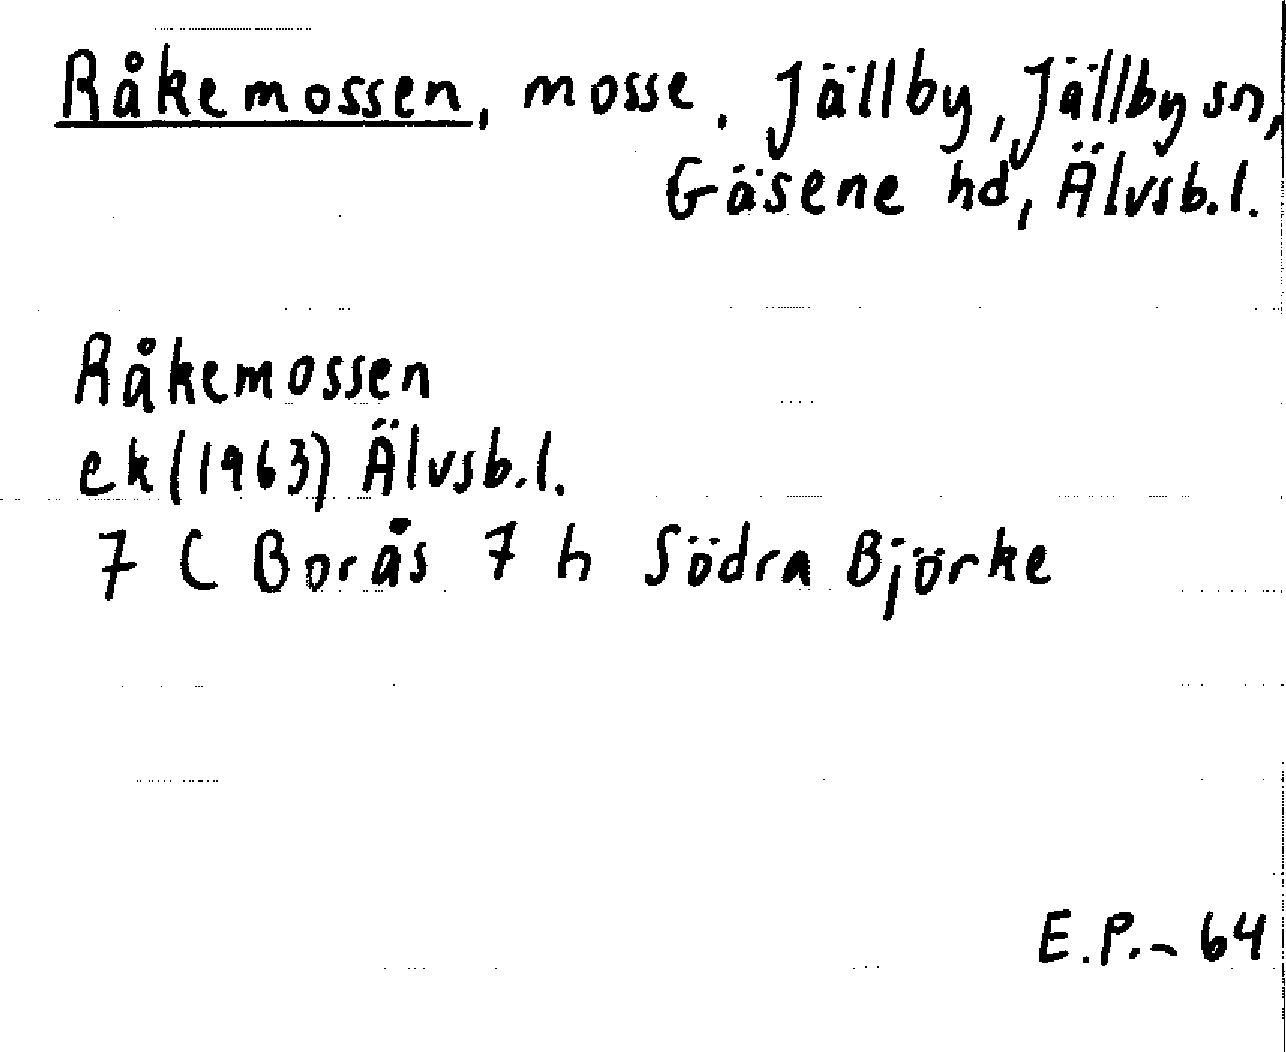 Råkemossen, mosse. Jällby, Jällby sn,
Gäsene hd, Älvsb.l.
Råkemossen
ek (1963) Älvsb.l.
7 C Borås 7 h Södra Björke
E.P.-64